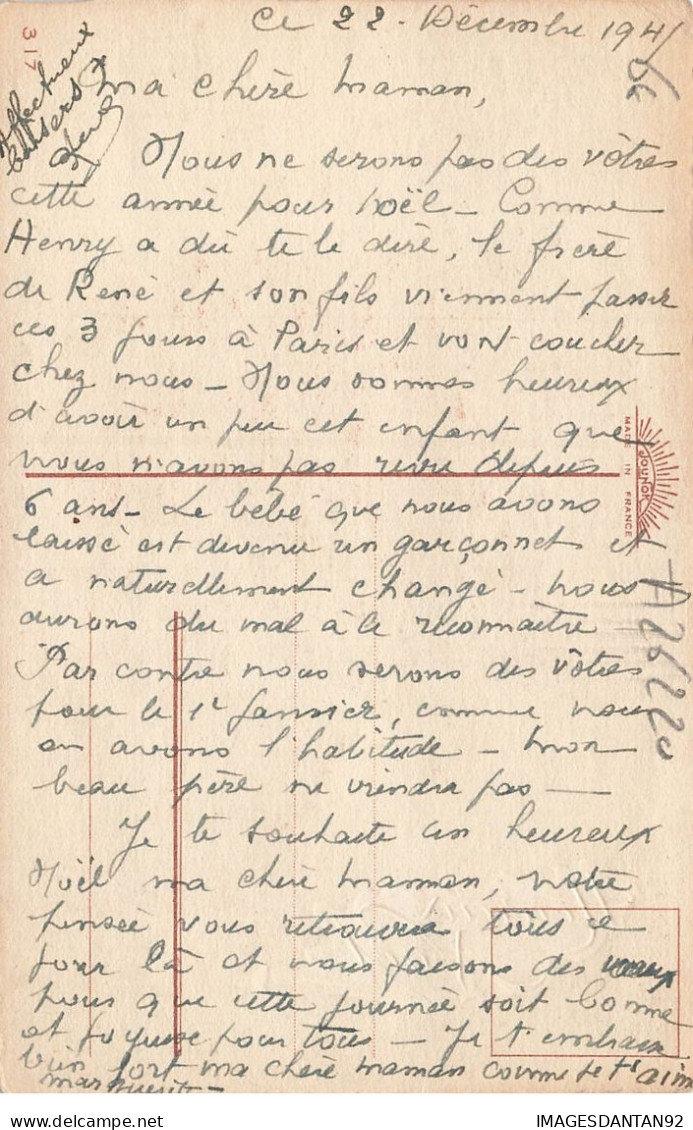 Ce 22 - Décembre 194
317
Affectueux
baisers
ma chère maman,
Nous ne serons pas des vôtres
cette année pour Noël - Comme
Henry a dû te le dire, le frère
de René et son fils viennent passer
ces 3 jours à Paris et vont coucher
chez nous - Nous sommes heureux
d'avoir un peu cet enfant que
nous n'avons pas revu depuis
6 ans - Le bébé que nous avons
laissé est devenu un garçonnet et
a naturellement changé - nous
aurons du mal à le reconnaître
Par contre nous serons des vôtres
pour le 1er Janvier, comme nous
en avons l'habitude - mon
beau père ne viendra pas -
Je te souhaite un heureux
Noël ma chère maman, notre
pensée vous retrouvera tous ce
jour là et nous faisons des vœux
pour que cette journée soit bonne
et joyeuse pour tous - Je t'embrasse
bien fort ma chère maman comme je t'aime
marguerite -
JOUNOK
MADE IN FRANCE
IMAGESDANTAN92